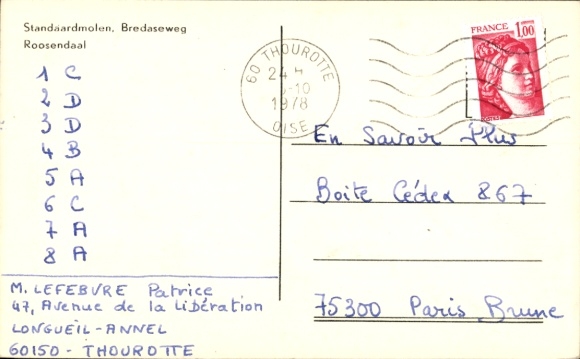 Standaardmolen, Bredaseweg
Roosendaal
1 C
2 D
3 D
4 B
5 A
6 C
7 A
8 A
M. LEFEBVRE Patrice
47, Avenue de la Libération
LONGUEIL-ANNEL
60150 - THOUROTTE
60 THOUROTTE
24 H
-10
1978
OISE
FRANCE 1,00
En Savoir Plus
Boite Cédex 867
75300 Paris Brune